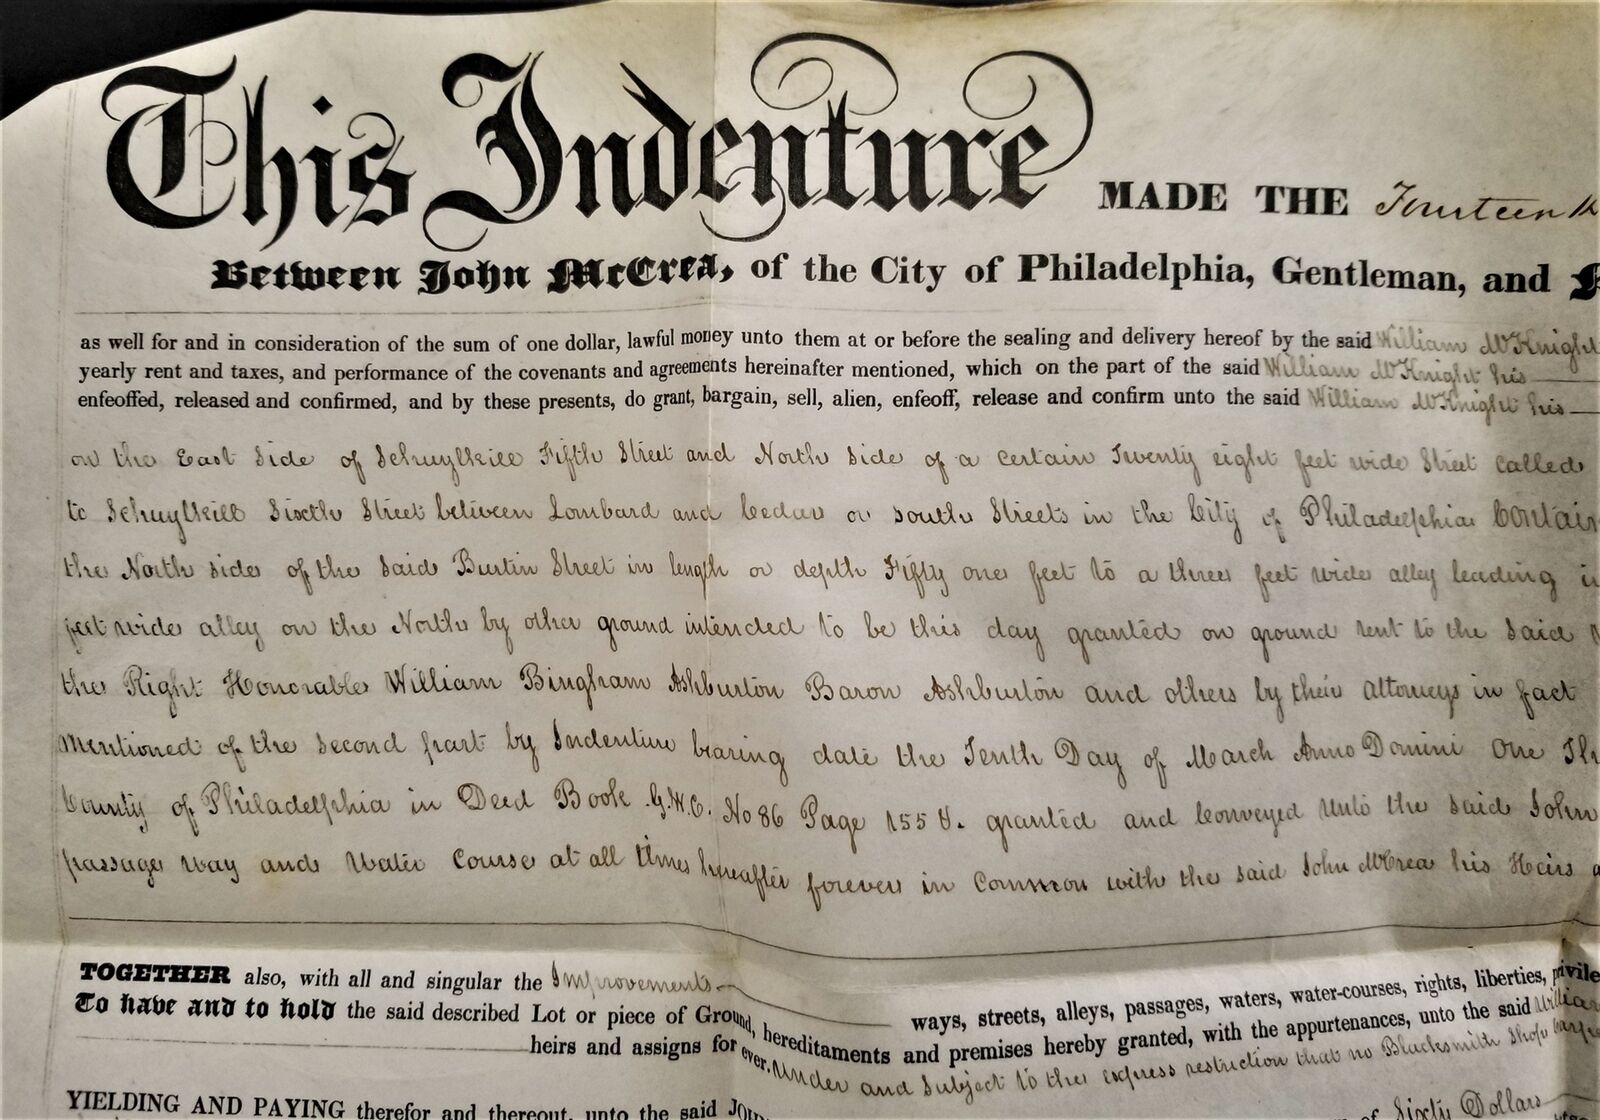 This Indenture MADE THE Fourteenth
Between John McCrea, of the City of Philadelphia, Gentleman, and
as well for and in consideration of the sum of one dollar, lawful money unto them at or before the sealing and delivery hereof by the said William McKnight
yearly rent and taxes, and performance of the covenants and agreements hereinafter mentioned, which on the part of the said William McKnight his
enfeoffed, released and confirmed, and by these presents, do grant, bargain, sell, alien, enfeoff, release and confirm unto the said William McKnight his
on the East Side of Schuylkill Fifth Street and North side of a certain Twenty eight feet wide Street called
to Schuylkill Sixth Street between Lombard and Cedar or South Streets in the City of Philadelphia Contain
the North side of the said Burtin Street in length or depth Fifty one feet to a three feet wide alley leading
feet wide alley on the North by other ground intended to be this day granted on ground rent to the said
the Right Honorable William Bingham Ashburton Baron Ashburton and others by their attorneys in fact
Mentioned of the Second part by Indenture bearing date the Tenth Day of March Anno Domini One
County of Philadelphia in Deed Book G.W.C. No 86 Page 155 &. granted and Conveyed Unto the said John
passage way and Water Course at all times hereafter forever in Common with the said John McCrea his Heirs
TOGETHER also, with all and singular the Improvements ways, streets, alleys, passages, waters, water-courses, rights, liberties, privile
To have and to hold the said described Lot or piece of Ground, hereditaments and premises hereby granted, with the appurtenances, unto the said William
heirs and assigns for ever. Under and Subject to the express restriction that no Blacksmith Shop
YIELDING AND PAYING therefor and thereout, unto the said of Sixty Dollars